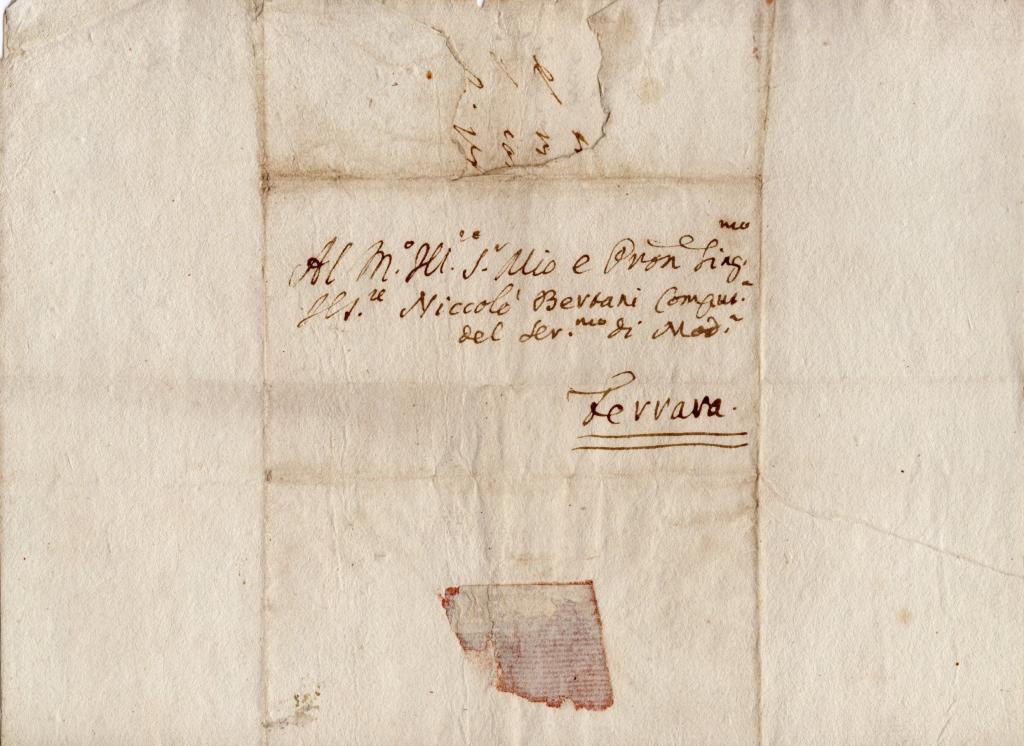 Al M.° Ill.re S.r Mio e Pron.e Sing.mo
Il S.re Niccolò Bertani Comput.
del Ser.mo di Mod.
Ferrara.